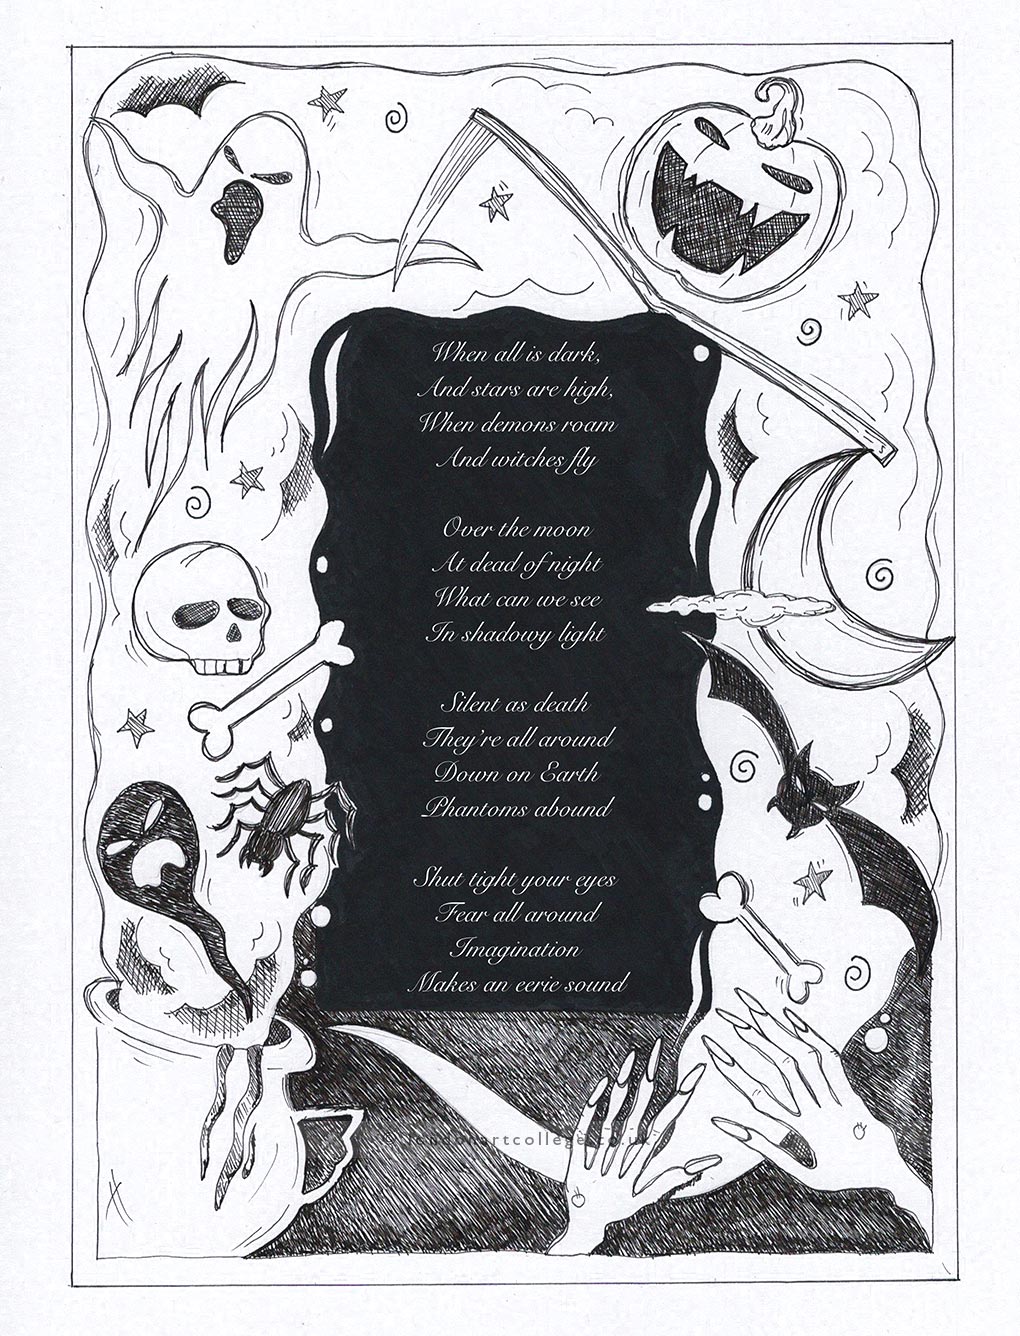 When all is dark,
And stars are high,
When demons roam
And witches fly
Over the moon
At dead of night
What can we see
In shadowy light
Silent as death
They're all around
Down on Earth
Phantoms abound
Shut tight your eyes
Fear all around
Imagination
Makes an eerie sound
© londonartcollege.co.uk